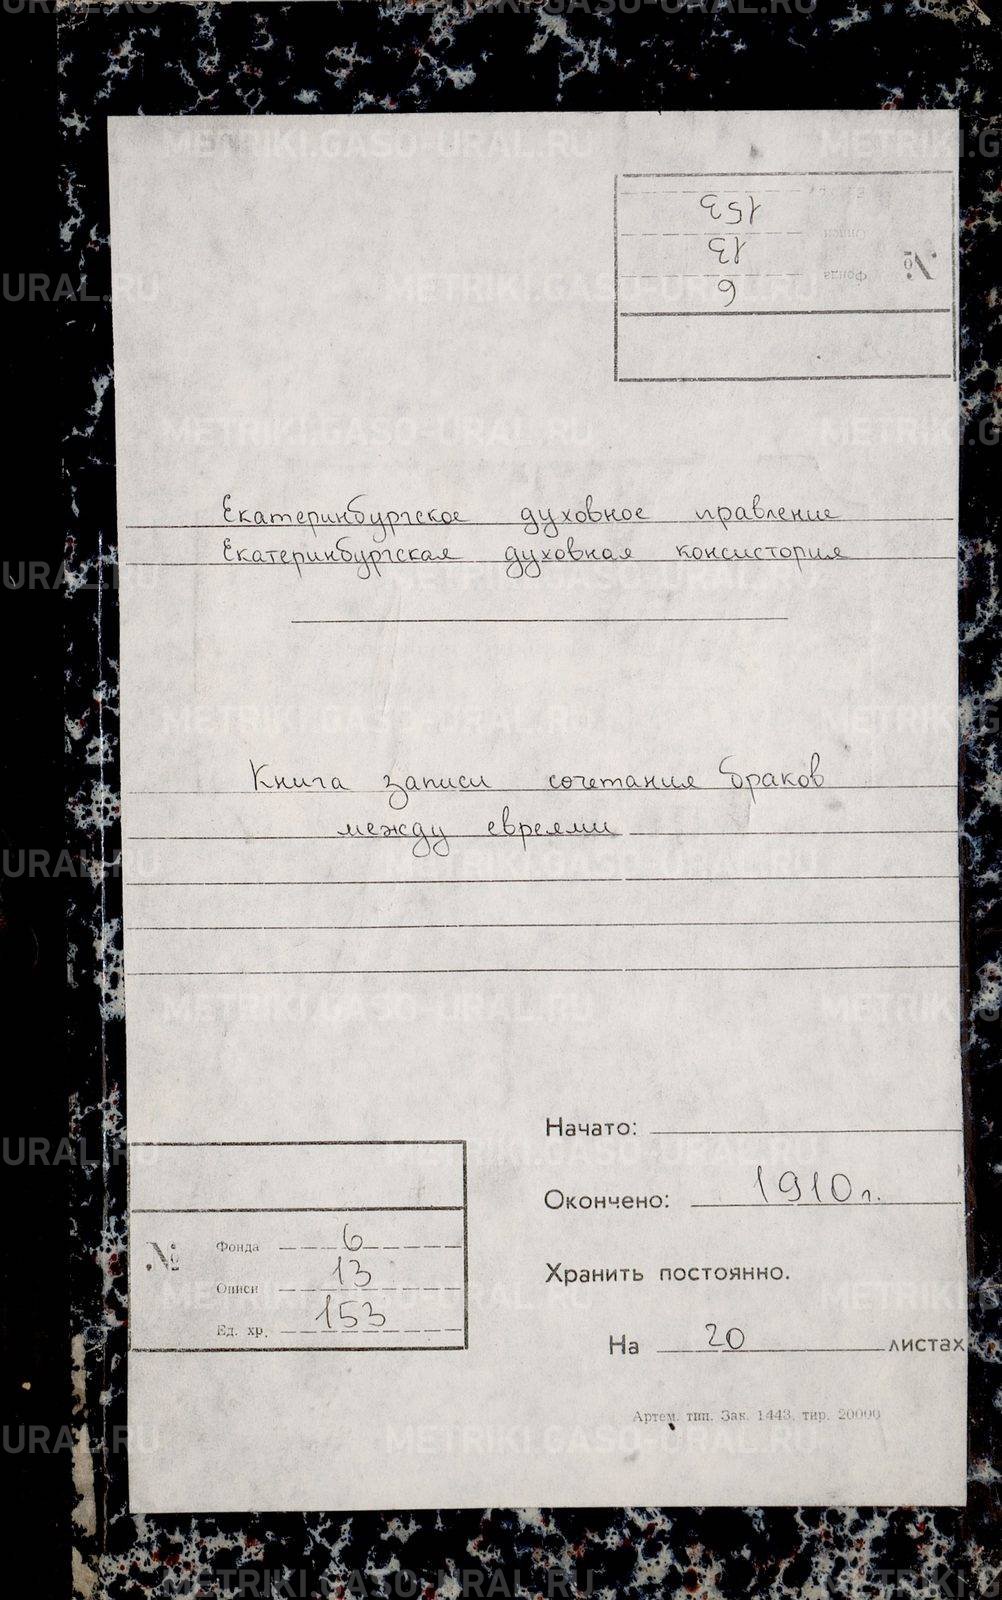 153
13
6
№
Фонда
Описи
Екатеринбургское духовное правление
Екатеринбургская духовная консистория
Книга записи сочетания браков
между евреями
Начато:
Окончено: 1910 г.
Хранить постоянно.
На 20 листах
№
Фонда 6
Описи 13
Ед. хр. 153
Артем. тип. Зак. 1443, тир. 20000
METRIKI.GASO-URAL.RU